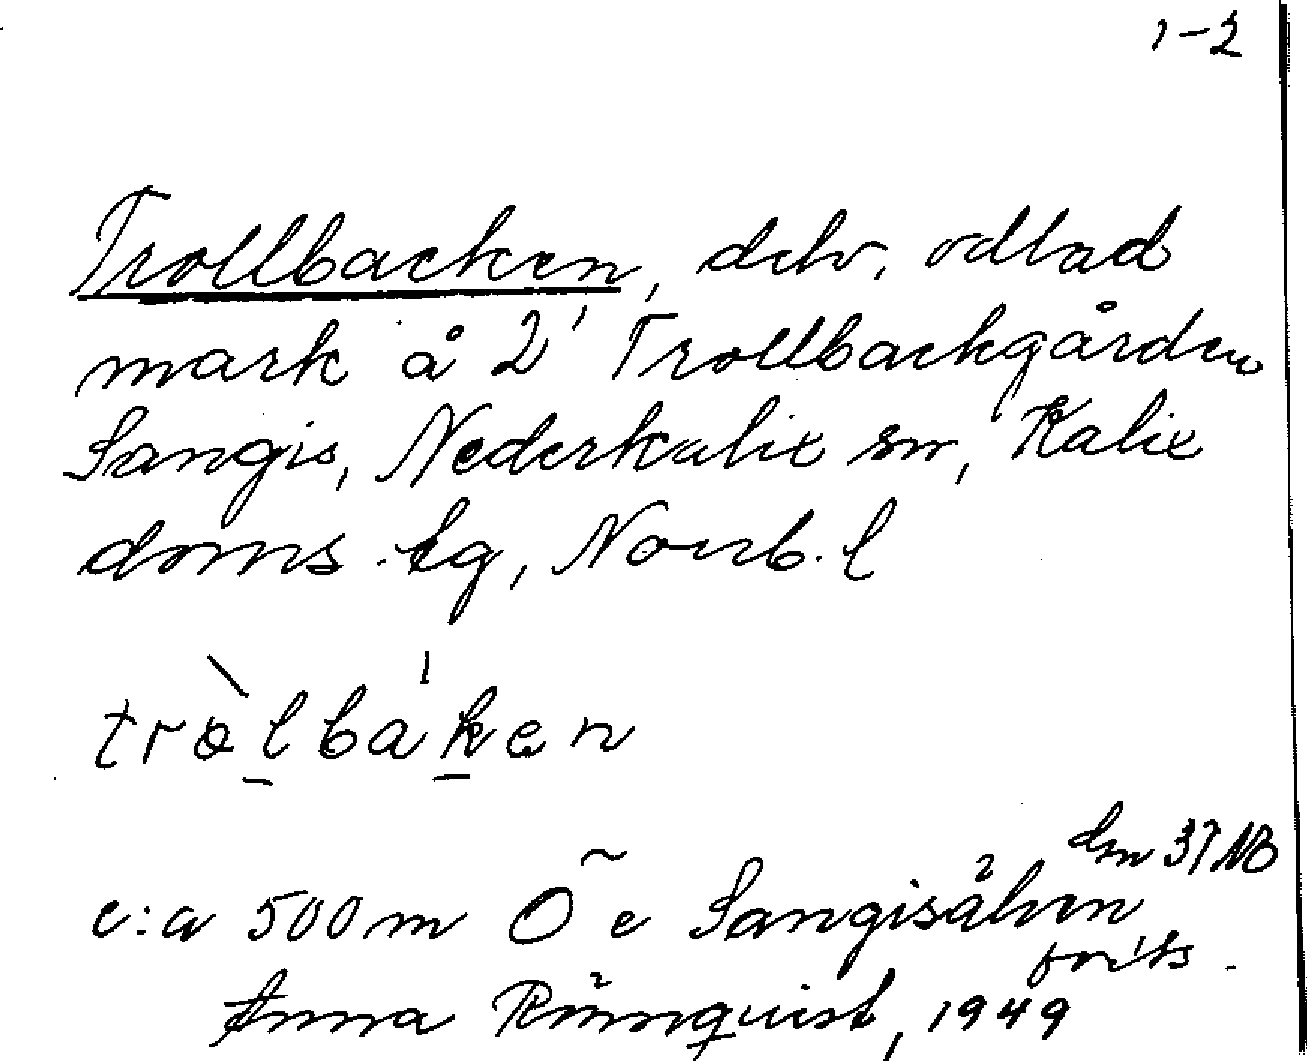 1-2
Trollbacken, delv. odlad
mark å 2' Trollbackgården
Sangis, Nederkalix sn, Kalix
doms. tg, Norrb. l
tròlbáken
c:a 500 m Ö e Sangisälven
37 NB
forts.
Anna Rönnquist, 1949